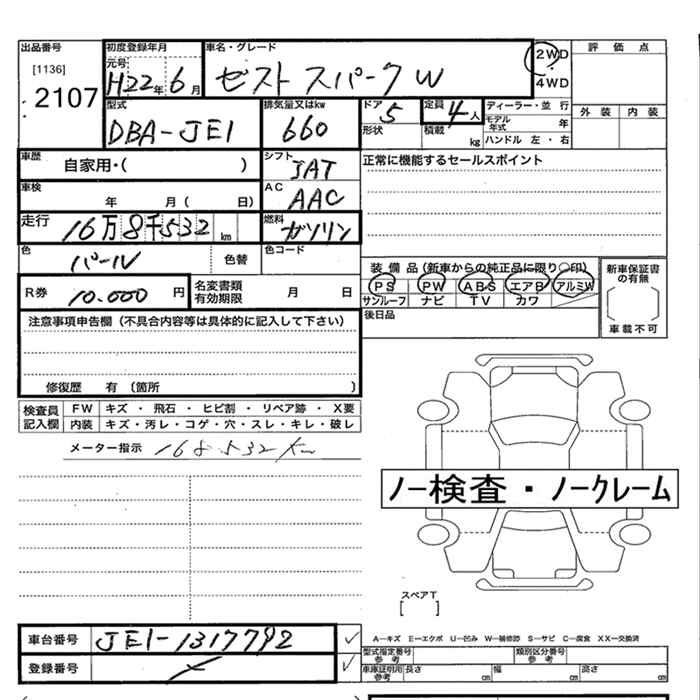 出品番号
[1136]
2107
初度登録年月
元号
H22年 6月
車名・グレード
ゼスト スパーク W
2WD
4WD
評価点
外装 内装
型式
DBA-JE1
排気量又はkw
660
ドア 5
形状
定員 4人
積載 kg
ディーラー・並 行
モデル年式 年
ハンドル 左・右
車歴
自家用・( )
シフト
3AT
正常に機能するセールスポイント
車検
年 月( 日)
AC
AAC
走行
16万8千532 km
燃料
ガソリン
色
パール
色替
色コード
装備品(新車からの純正品に限り○印)
PS PW ABS エアB アルミW
サンルーフ ナビ TV カワ
新車保証書の有無
車載不可
R券
10.000 円
名変書類有効期限
月 日
後日品
注意事項申告欄(不具合内容等は具体的に記入して下さい)
修復歴 有(箇所 )
検査員記入欄
FW キズ・飛石・ヒビ割・リペア跡・X要
内装 キズ・汚レ・コゲ・穴・スレ・キレ・破レ
メーター指示 168532km
ノー検査・ノークレーム
スペアT
[ ]
車台番号
JE1-1317792
登録番号
A―キズ E―エクボ U―凹み W―補修跡 S―サビ C―腐食 XX―交換済
型式指定番号 参考
類別区分番号 参考
車庫証明用 参考
長さ cm
幅 cm
高さ cm